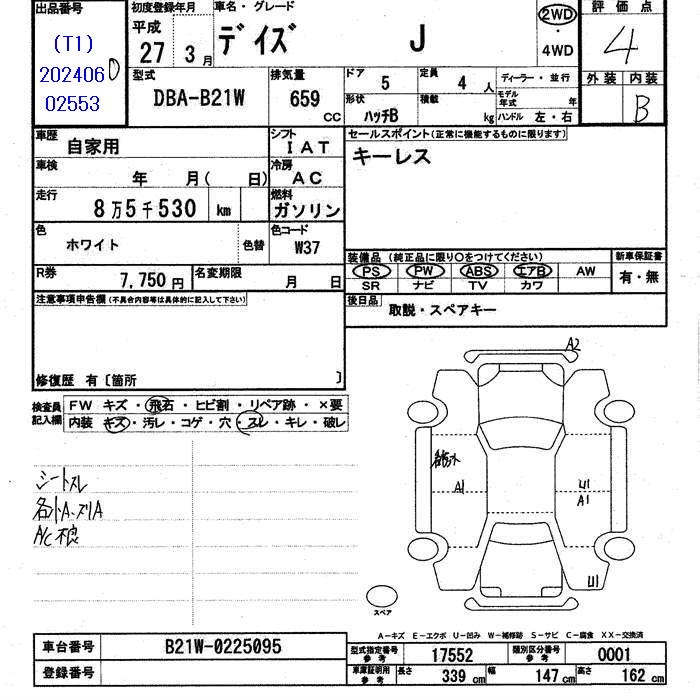 出品番号
(T1)
202406
02553
初度登録年月
平成
27 3月
車名・グレード
デイズ J
2WD
・
4WD
評価点
4
外装 内装
B
型式
DBA-B21W
排気量
659
CC
ドア
5
定員
4人
形状
ハッチB
積載
kg
ディーラー・並行
モデル年式 年
ハンドル 左・右
車歴
自家用
シフト
IAT
車検
年 月( 日)
冷房
AC
走行
8万5千530 km
燃料
ガソリン
色
ホワイト
色替
色コード
W37
R券
7,750円
名変期限
月 日
セールスポイント(正常に機能するものに限ります)
キーレス
装備品 (純正品に限り○をつけてください)
PS PW ABS エアB AW
SR ナビ TV カワ
新車保証書
有・無
後日品
取説・スペアキー
注意事項申告欄(不具合内容等は具体的に記入して下さい)
修復歴 有〔箇所 〕
検査員記入欄
FW キズ・飛石・ヒビ割・リペア跡・×要
内装 キズ・汚レ・コゲ・穴・スレ・キレ・破レ
シートスレ
A/C不良
A2
A1
U1
A1
U1
スペア
A-キズ E-エクボ U-凹み W-補修跡 S-サビ C-腐食 XX-交換済
車台番号
B21W-0225095
登録番号
型式指定番号
参考
17552
類別区分番号
参考
0001
車庫証明用
参考
長さ
339 cm
幅
147 cm
高さ
162 cm